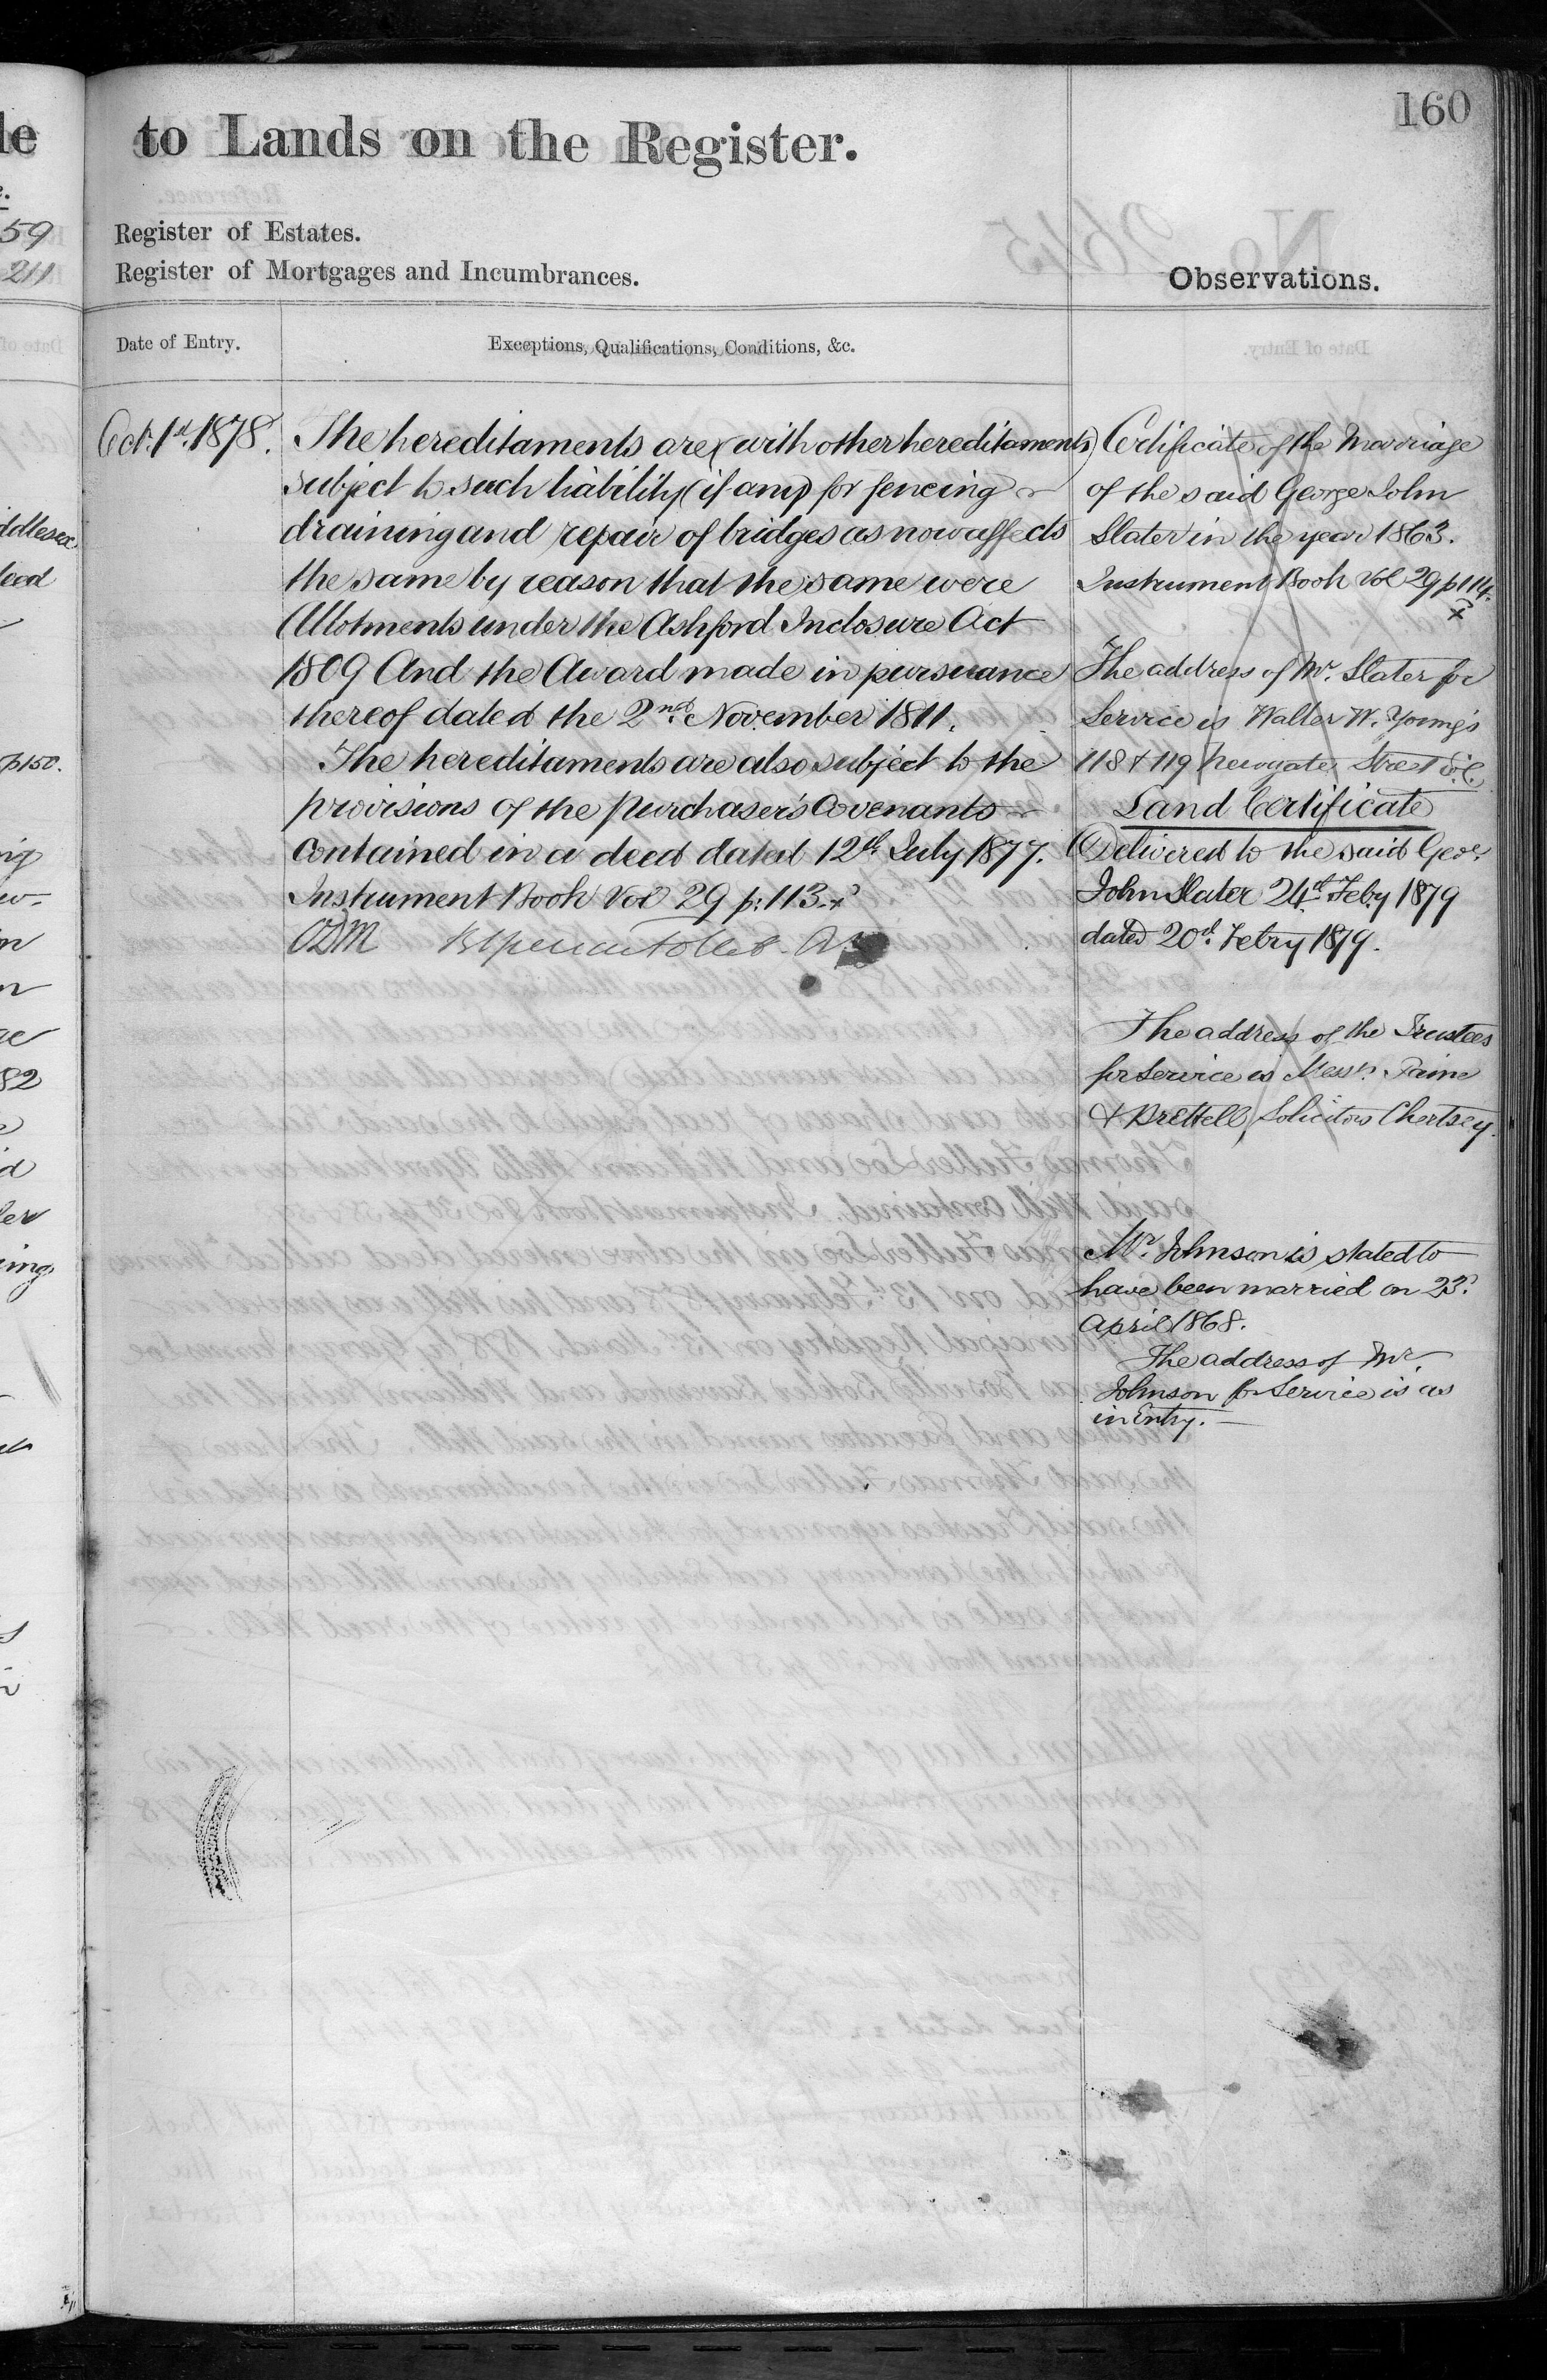 160
to Lands on the Register.
Register of Estates.
Register of Mortgages and Incumbrances.
Observations.
Date of Entry.
Exceptions, Qualifications, Conditions, &c.
Octr. 1st. 1878.
The hereditaments are (with other hereditaments)
subject to such liability (if any) for fencing
draining and repair of bridges as now affects
the same by reason that the same were
Allotments under the Ashford Inclosure Act
1809 And the Award made in pursuance
thereof dated the 2nd November 1811.
The hereditaments are also subject to the
provisions of the purchaser's Covenants
contained in a deed dated 12th July 1877.
Instrument Book Vol 29 p: 113.
Certificate of the Marriage
of the said George John
Slater in the year 1863.
Instrument Book Vol 29 p 114.
The address of Mr. Slater for
Service is Walter W. Young's
118 & 119 Newgate Street E.C.
Land Certificate
Delivered to the said Geoe.
John Slater 24th Feby 1879
dated 20th. Febry 1879.
The address of the Trustees
for Service is Messrs. Paine
& Brettell, Solicitors Chertsey.
Mr. Johnson is stated to
have been married on 23d.
April 1868.
The address of Mr.
Johnson for Service is as
in Entry.
59
211
p150.
82